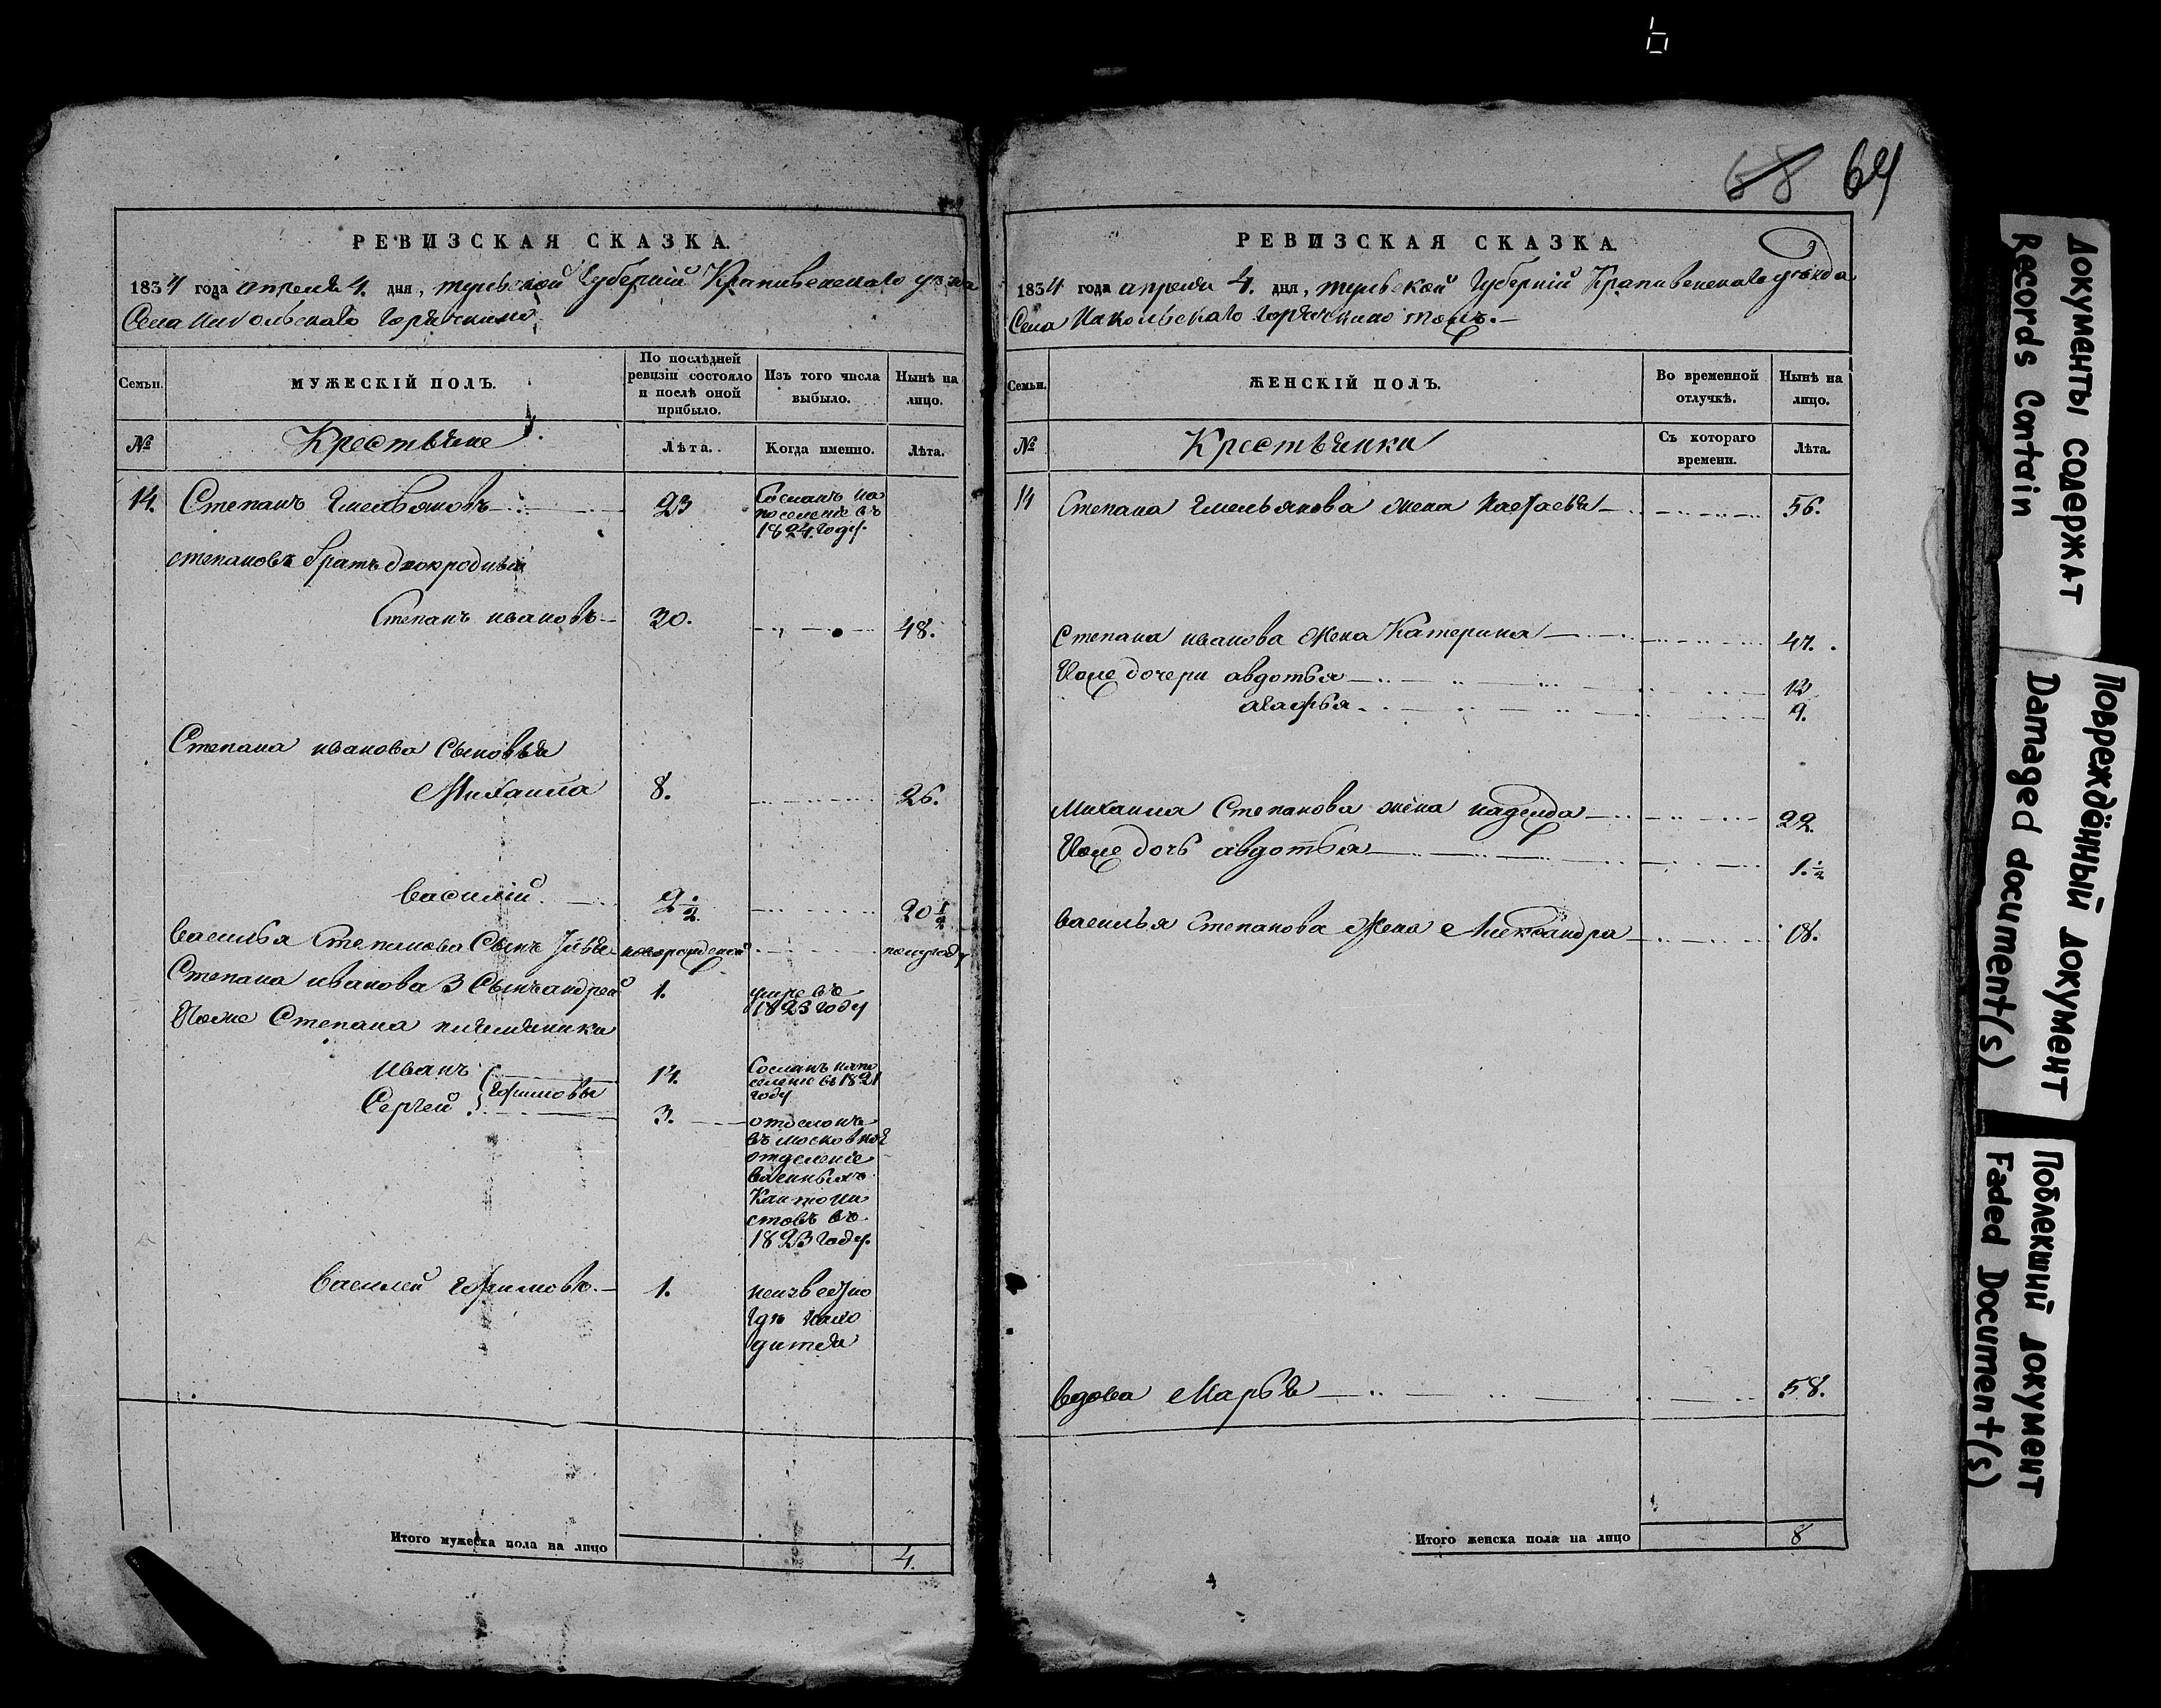 68 64
РЕВИЗСКАЯ СКАЗКА.
1834 года апреля 4. дня, тульской губерний Крапивенскаго уезда
Села Никольскаго Горячкино
Семьи.
МУЖЕСКІЙ ПОЛЪ.
По послѣдней ревизіи состояло и послѣ оной прибыло.
Изъ того числа выбыло.
Нынѣ на лицо.
№
Крестьяне
Лѣта.
Когда именно.
Лѣта.
14. Степанъ Емельяновъ 23 Сосланъ на
поселение въ
1824 году.
степановъ братъ двоюродный
Степанъ ивановъ 30. 48.
Степана иванова Сыновья
Михаила 8. 26.
Василий. 2 1/2 20 1/2
Василья Степанова Сынъ новорожденой полугоду
Степана иванова 3 Сынъ андрей 1. умре въ
1823 году
Степана племяника
Иванъ 14. Сосланъ на по
селение въ 1821
году
Сергей Ефимовы 3.
въ московкое
отделение
военныхъ
Кантони
стовъ въ
1823 году.
Василей Ефимовъ. 1. неизвестно
где нахо
дитса
Итого мужеска пола на лицо 4.
РЕВИЗСКАЯ СКАЗКА.
1834 года апреля 4. дня, тульской губерний Крапивенскаго уезда
Села Никольскаго Горячкино тожъ.
Семьи.
ЖЕНСКІЙ ПОЛЪ.
Во временной отлучкѣ.
Нынѣ на лицо.
№
Крестьянки
Съ котораго времени.
Лѣта.
14 Степана Емельянова жена Настасья 56.
Степана иванова жена Катерина 47.
дочери авдотья 12
агафья 9.
Михаила Степанова жена надежда 22.
дочь авдотья 1. 1/2
Василья Степанова жена Александра 18.
вдова Марья 58.
Итого женска пола на лицо 8
Документы содержат
Records Contain
Повреждённый документ
Damaged document(s)
Поблекший документ
Faded Document(s)